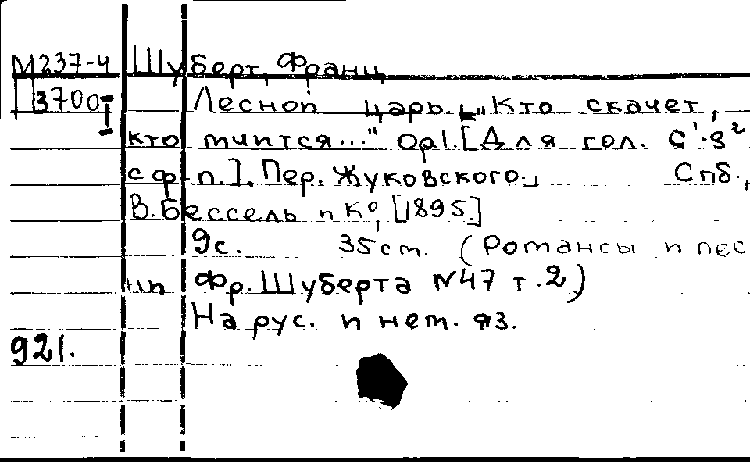 М237-4 Шуберт, Франц
3700 I Лесной царь. „Кто скачет,
кто мчится..." Op1. [Для гол. c¹-g²
с ф-п.]. Пер. Жуковского. Спб.,
В. Бессель и Кº, [1895.]
9с. 35см. (Романсы и пес
ни Фр. Шуберта №47 т.2)
На рус. и нем. яз.
921.